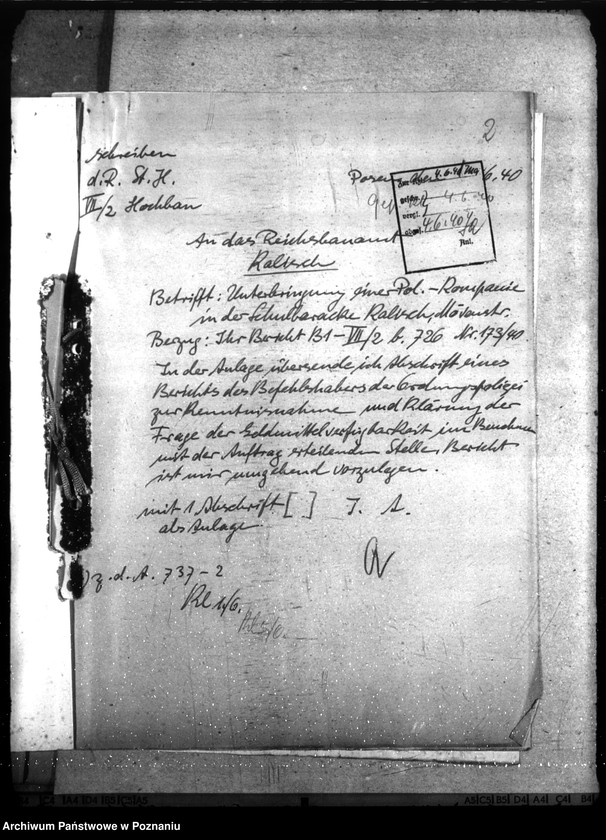 2
Schreiben
d. R. St. H.
VII/2 Hochbau
Posen, 6.40
4.6.40
4.6.40
Anl.
An das Reichsbauamt
Kalisch
Betrifft: Unterbringung einer Pol.-Kompanie
in der Schulbaracke Kalisch, Möwenstr.
Bezug: Ihr Bericht B1-VII/2 b. 726 Nr. 173/40.
In der Anlage übersende ich Abschrift eines
Berichts des Befehlshabers der Ordnungspolizei
zur Kenntnisnahme und Klärung der
Frage der Geldmittelverfügbarkeit im Benehmen
mit der Auftrag erteilenden Stelle, Bericht
ist mir umgehend vorzulegen.
mit 1 Abschrift [ ] I. A.
als Anlage.
) z. d. A. 737-2
Archiwum Państwowe w Poznaniu